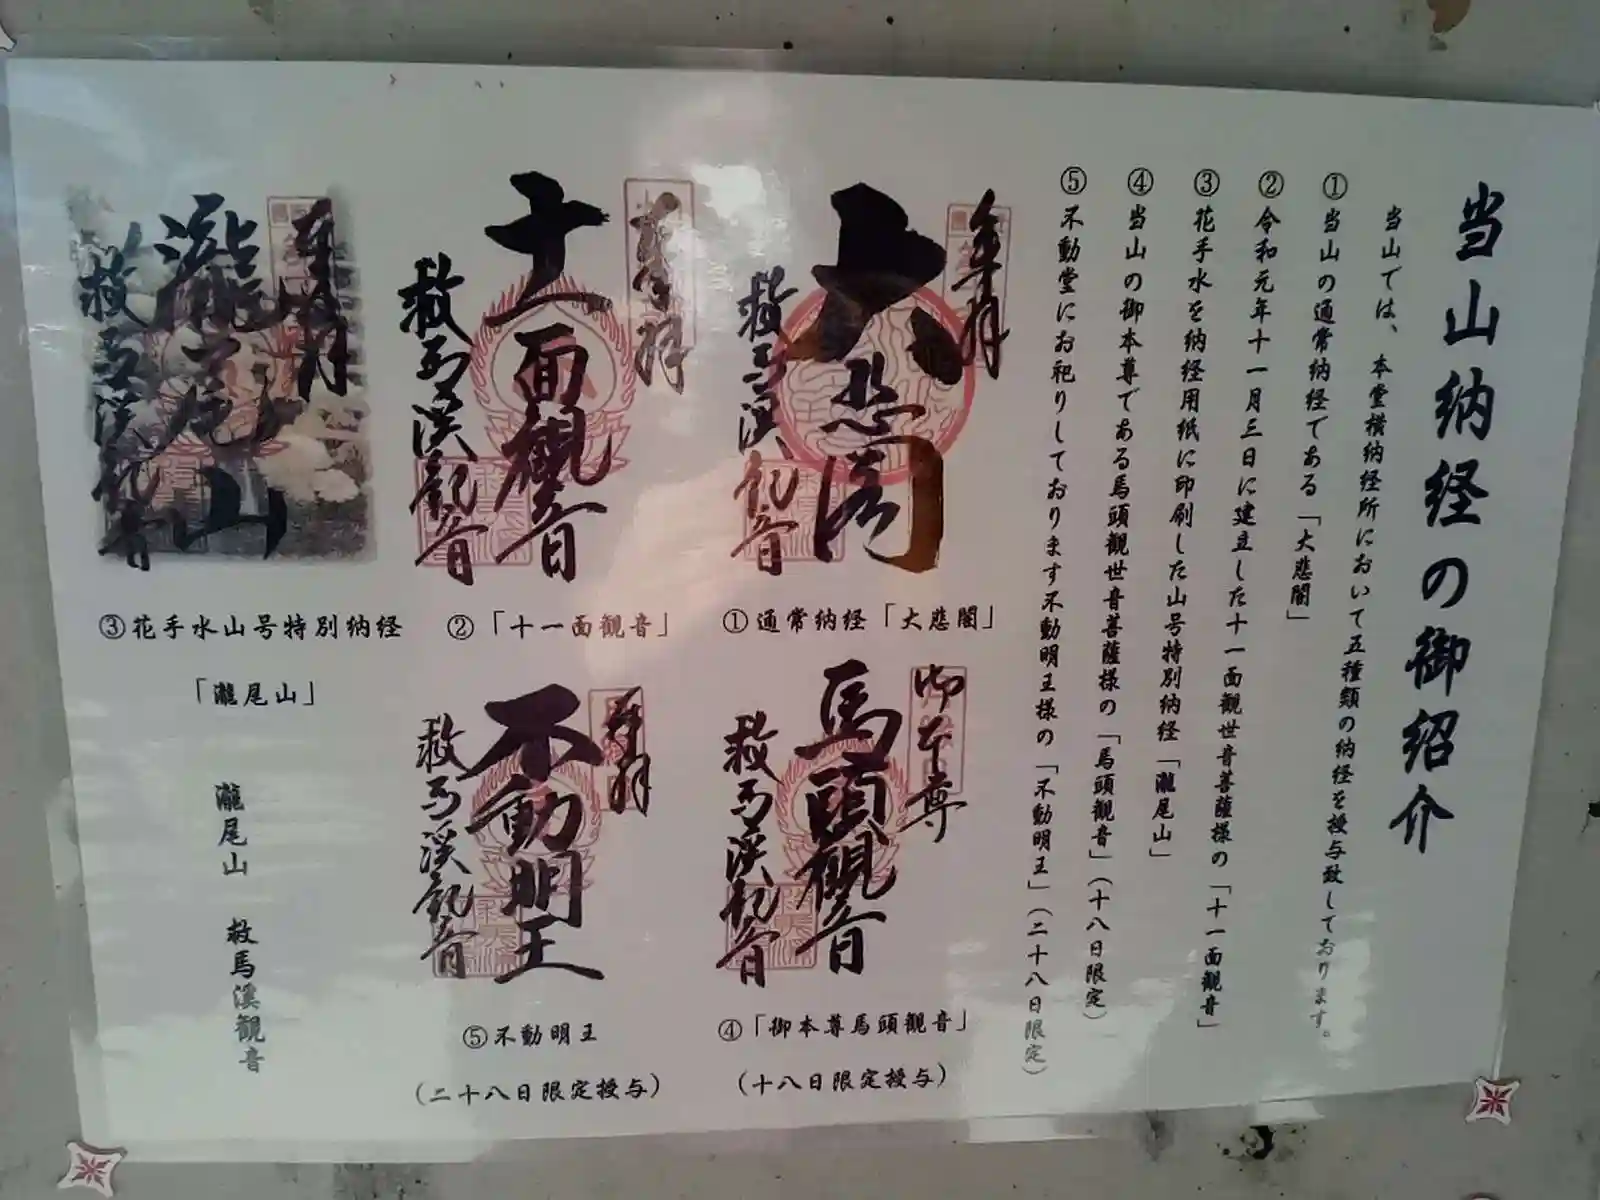 当山納経の御紹介
当山では、本堂横納経所において五種類の納経を授与致しております。
① 当山の通常納経である「大悲閣」
② 令和元年十一月三日に建立した十一面観世音菩薩様の「十一面観音」
③ 花手水を納経用紙に印刷した山号特別納経「瀧尾山」
④ 当山の御本尊である馬頭観世音菩薩様の「馬頭観音」(十八日限定)
⑤ 不動堂にお祀りしております不動明王様の「不動明王」(二十八日限定)
奉拝
大悲閣
救馬渓観音
①通常納経「大悲閣」
奉拝
十一面觀音
救馬渓観音
②「十一面観音」
奉拝
瀧尾山
救馬渓観音
③花手水山号特別納経
「瀧尾山」
御本尊
馬頭觀音
救馬渓観音
④「御本尊馬頭観音」
(十八日限定授与)
奉拝
不動明王
救馬渓観音
⑤不動明王
(二十八日限定授与)
瀧尾山 救馬溪観音